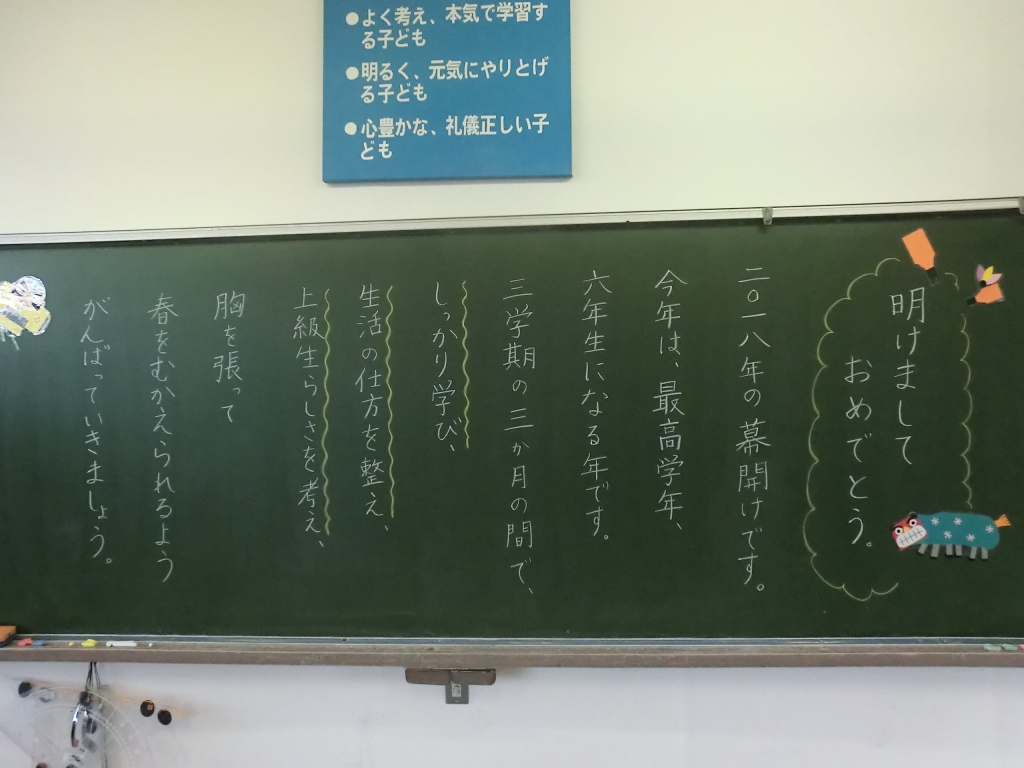 ●よく考え、本気で学習す
る子ども
●明るく、元気にやりとげ
る子ども
●心豊かな、礼儀正しい子
ども
明けまして
おめでとう。
二〇一八年の幕開けです。
今年は、最高学年、
六年生になる年です。
三学期の三か月の間で、
しっかり学び、
生活の仕方を整え、
上級生らしさを考え、
胸を張って
春をむかえられるよう
がんばっていきましょう。